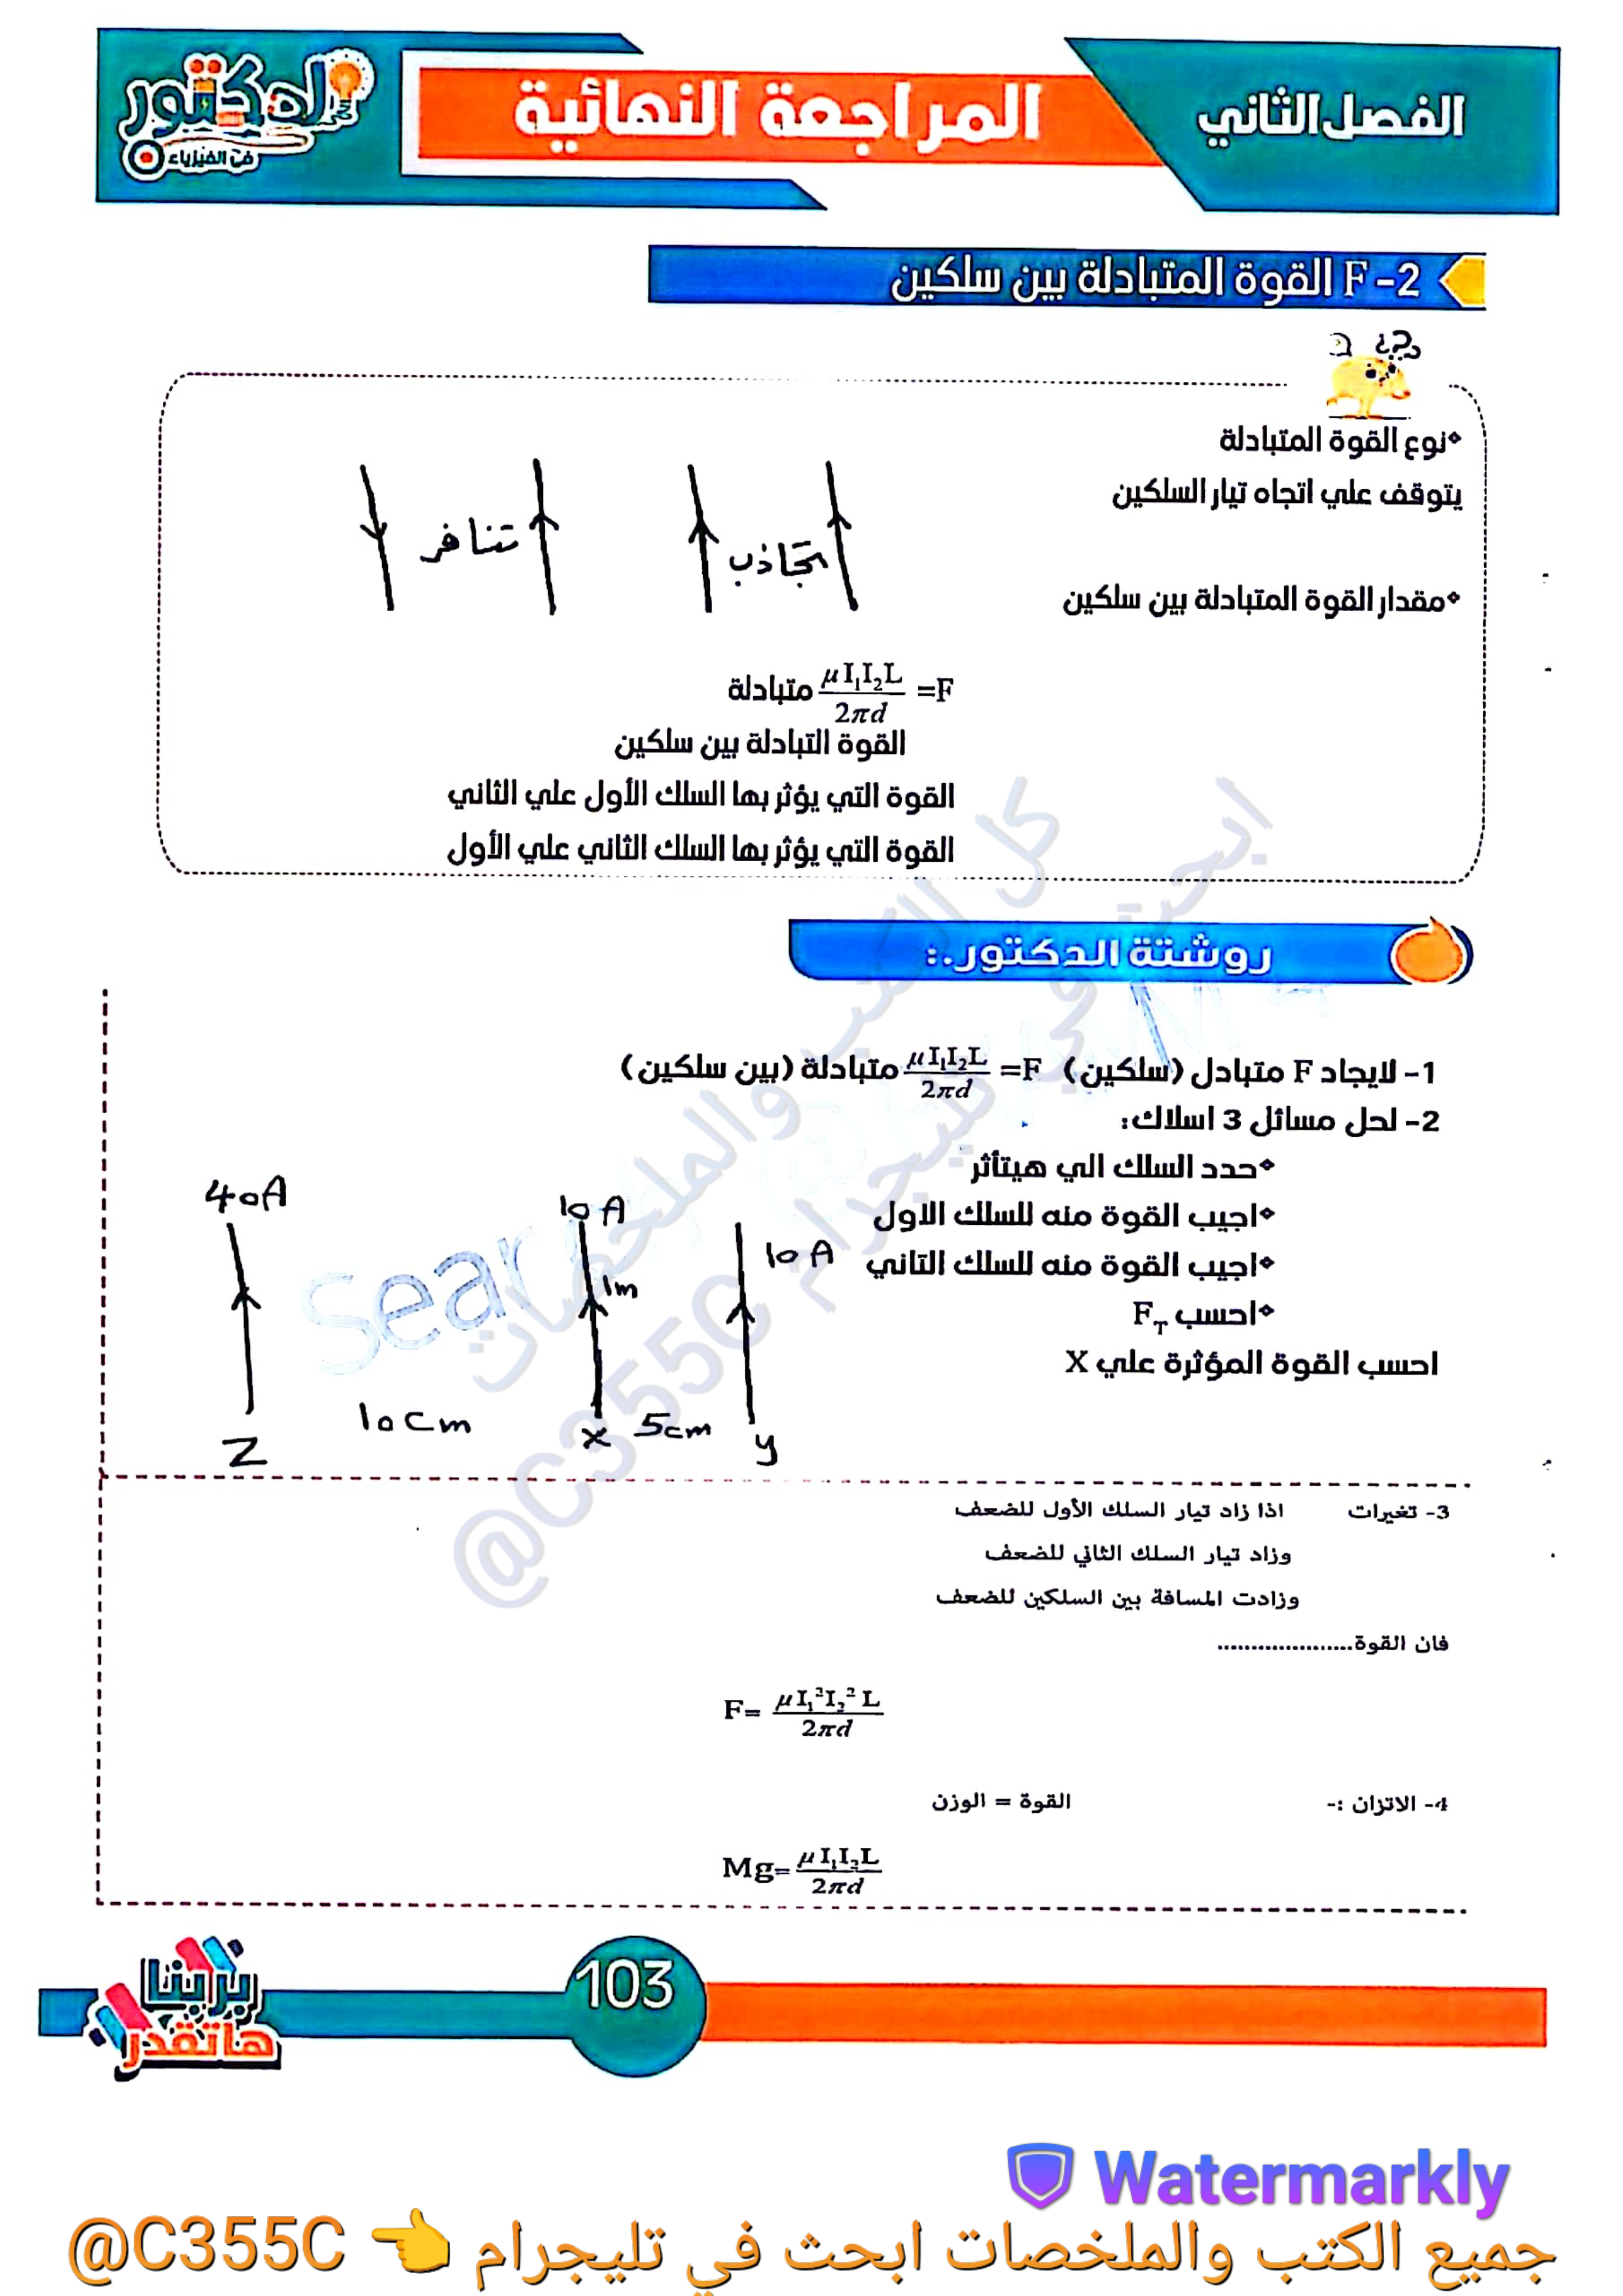 الفصل الثاني
المراجعة النهائية
الدكتور
في الفيزياء
F-2 القوة المتبادلة بين سلكين
؟؟
❖نوع القوة المتبادلة
يتوقف علي اتجاه تيار السلكين
تجاذب
تنافر
❖مقدار القوة المتبادلة بين سلكين
F= μI₁I₂L / 2πd متبادلة
القوة التبادلة بين سلكين
القوة التي يؤثر بها السلك الأول علي الثاني
القوة التي يؤثر بها السلك الثاني علي الأول
روشتة الدكتور:.
1- لايجاد F متبادل (سلكين) F= μI₁I₂L / 2πd متبادلة (بين سلكين)
2- لحل مسائل 3 اسلاك:
❖حدد السلك الي هيتأثر
❖اجيب القوة منه للسلك الاول
❖اجيب القوة منه للسلك التاني
❖احسب F_T
احسب القوة المؤثرة علي X
40A
10A
10A
1m
10cm
5cm
Z
X
y
3- تغيرات اذا زاد تيار السلك الأول للضعف
وزاد تيار السلك الثاني للضعف
وزادت المسافة بين السلكين للضعف
فان القوة....................
F= μI₁²I₂² L / 2πd
4- الاتزان :- القوة = الوزن
Mg= μI₁I₂L / 2πd
بربنا
هاتقدر
103
كل الكتب والملخصات
ابحث في تليجرام
@C355C
Sear
Watermarkly
جميع الكتب والملخصات ابحث في تليجرام 👈 @C355C